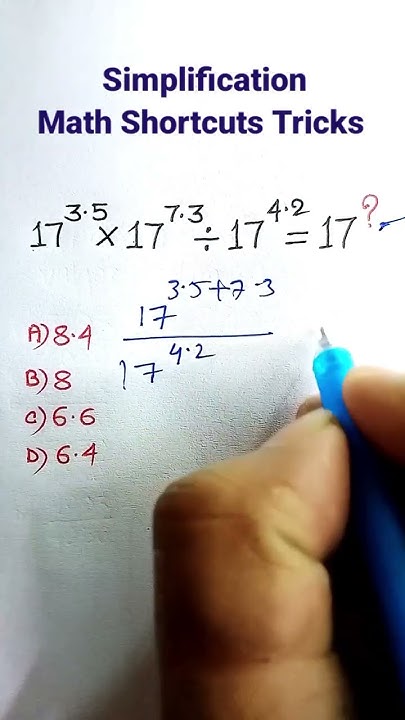 Simplification
Math Shortcuts Tricks
17^3.5 × 17^7.3 ÷ 17^4.2 = 17^?
17^3.5+7.3
17^4.2
A) 8.4
B) 8
C) 6.6
D) 6.4